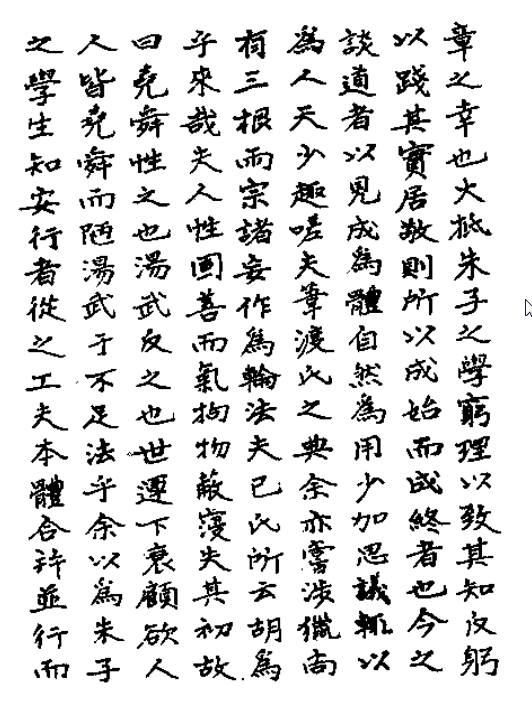 章之幸也大抵朱子之學窮理以致其知反躬
以踐其實居敬則所以成始而成終者也今之
談道者以見成為體自然為用少加思議輒以
為人天少趣嗟夫葦渡氏之典余亦嘗涉獵啇
有三根而宗諸妄作為輪法夫已氏所云胡為
乎來哉夫人性固善而氣拘物蔽寖失其初故
曰堯舜性之也湯武反之也世運下衰顧欲人
人皆堯舜而陋湯武于不足法乎余以為朱子
之學生知安行者從之工夫本體合幷並行而